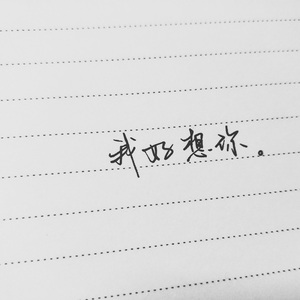 我好想你。